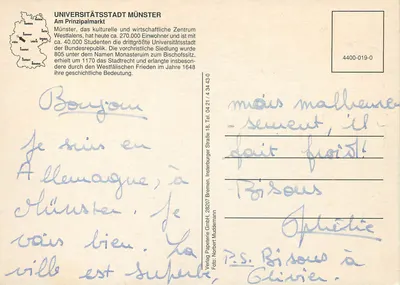 UNIVERSITÄTSSTADT MÜNSTER
Am Prinzipalmarkt
Münster, das kulturelle und wirtschaftliche Zentrum
Westfalens, hat heute ca. 270.000 Einwohner und ist mit
ca. 40.000 Studenten die drittgrößte Universitätsstadt
der Bundesrepublik. Die vorchristliche Siedlung wurde
805 unter dem Namen Monasterium zum Bischofssitz,
erhielt um 1170 das Stadtrecht und erlangte insbeson-
dere durch den Westfälischen Frieden im Jahre 1648
ihre geschichtliche Bedeutung.
4400-019-0
Bonjour
Je suis en
Allemagne, à
Münster. Je
vais bien. La
ville est superbe,
Verlag Papeterie GmbH, 28207 Bremen, Insterburger Straße 16, Tel. 04 21 - 4 34 43-0
Foto: Norbert Mustermann
mais malheureu-
sement, il
fait froid!
Bisous
Ophélie
P.S. Bisous à
Olivier.